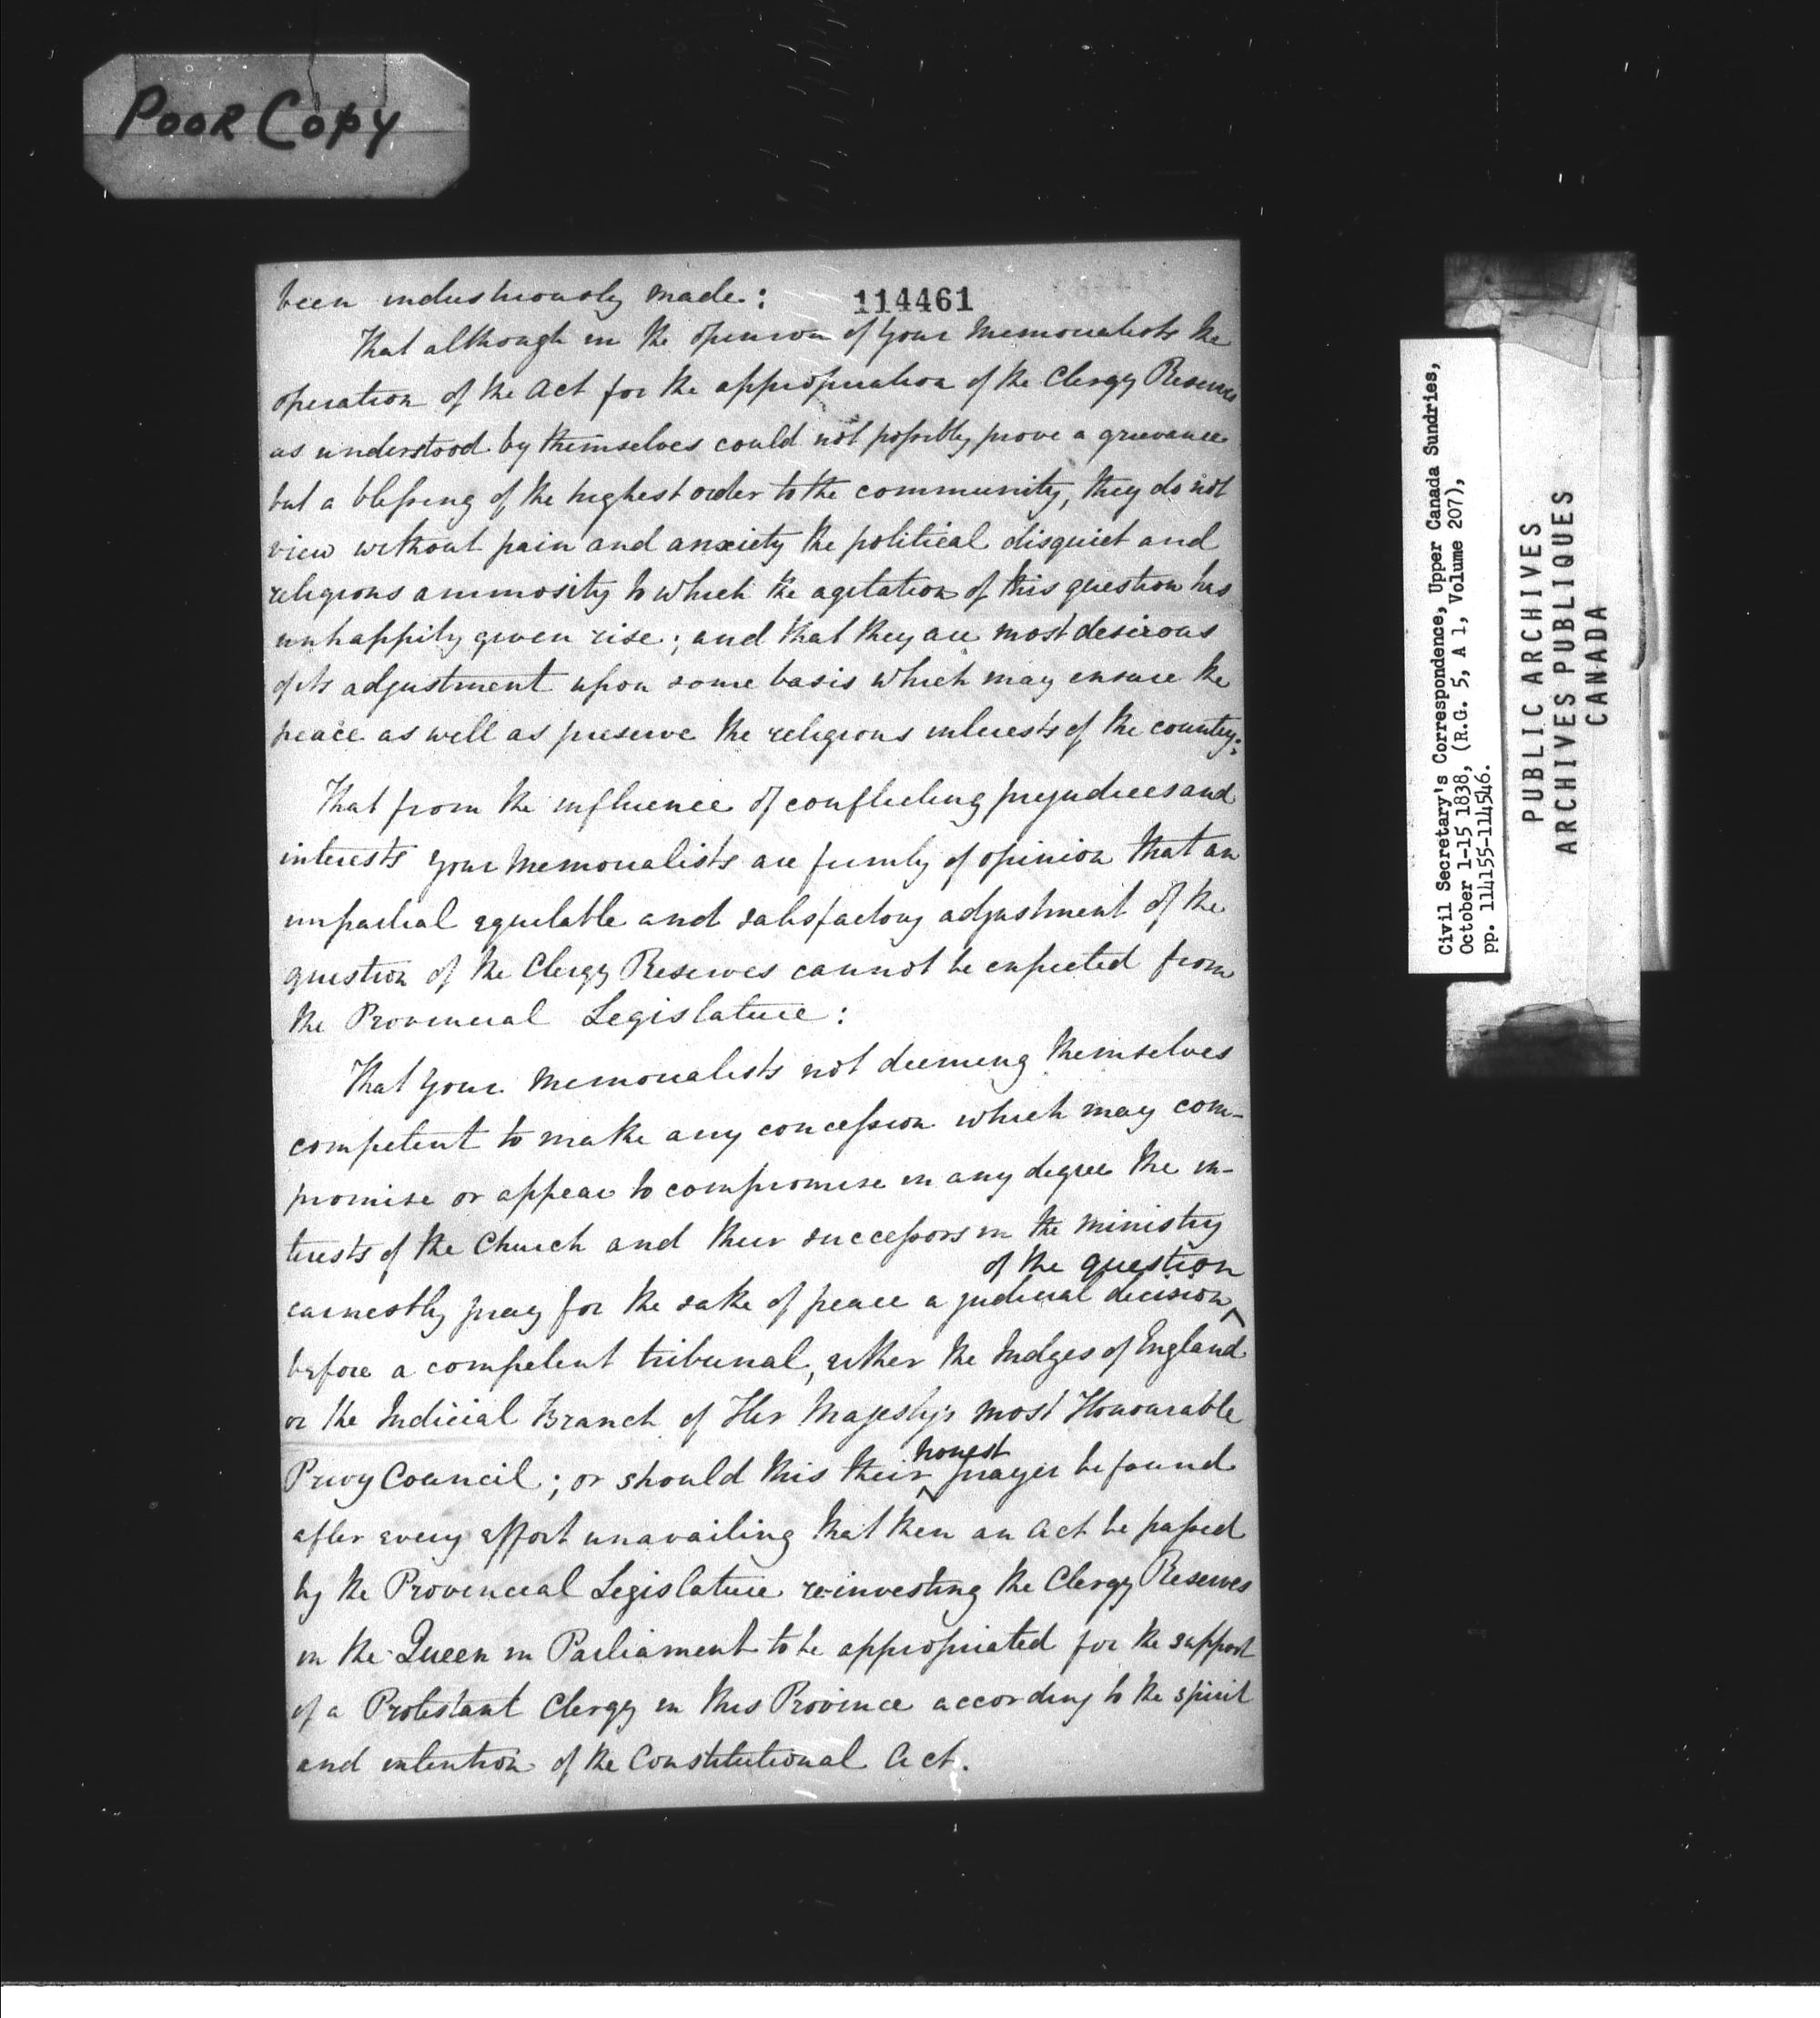 POOR COPY
114461
been industriously made:
That although in the opinion of Your Memorialists the
operation of the Act for the appropriation of the Clergy Reserves
as understood by themselves could not possibly prove a grievance
but a blessing of the highest order to the community, they do not
view without pain and anxiety the political disquiet and
religious animosity to which the agitation of this question has
unhappily given rise; and that they are most desirous
of its adjustment upon some basis which may ensure the
peace as well as preserve the religious interests of the country:
That from the influence of conflicting prejudices and
interests your Memorialists are firmly of opinion that an
impartial equitable and satisfactory adjustment of the
question of the Clergy Reserves cannot be expected from
the Provincial Legislature:
That Your Memorialists not deeming themselves
competent to make any concession which may com-
promise or appear to compromise in any degree the in-
terests of the Church and their successors in the ministry
of the question
earnestly pray for the sake of peace a judicial decision
before a competent tribunal, either the Judges of England
or the Judicial Branch of Her Majesty's most Honourable
honest
Privy Council; or should this their prayer be found
after every effort unavailing that then an Act be passed
by the Provincial Legislature re-investing the Clergy Reserves
in the Queen in Parliament to be appropriated for the support
of a Protestant Clergy in this Province according to the spirit
and intention of the Constitutional Act.
Civil Secretary's Correspondence, Upper Canada Sundries,
October 1-15 1838, (R.G. 5, A 1, Volume 207),
pp. 114155-114546.
PUBLIC ARCHIVES
ARCHIVES PUBLIQUES
CANADA